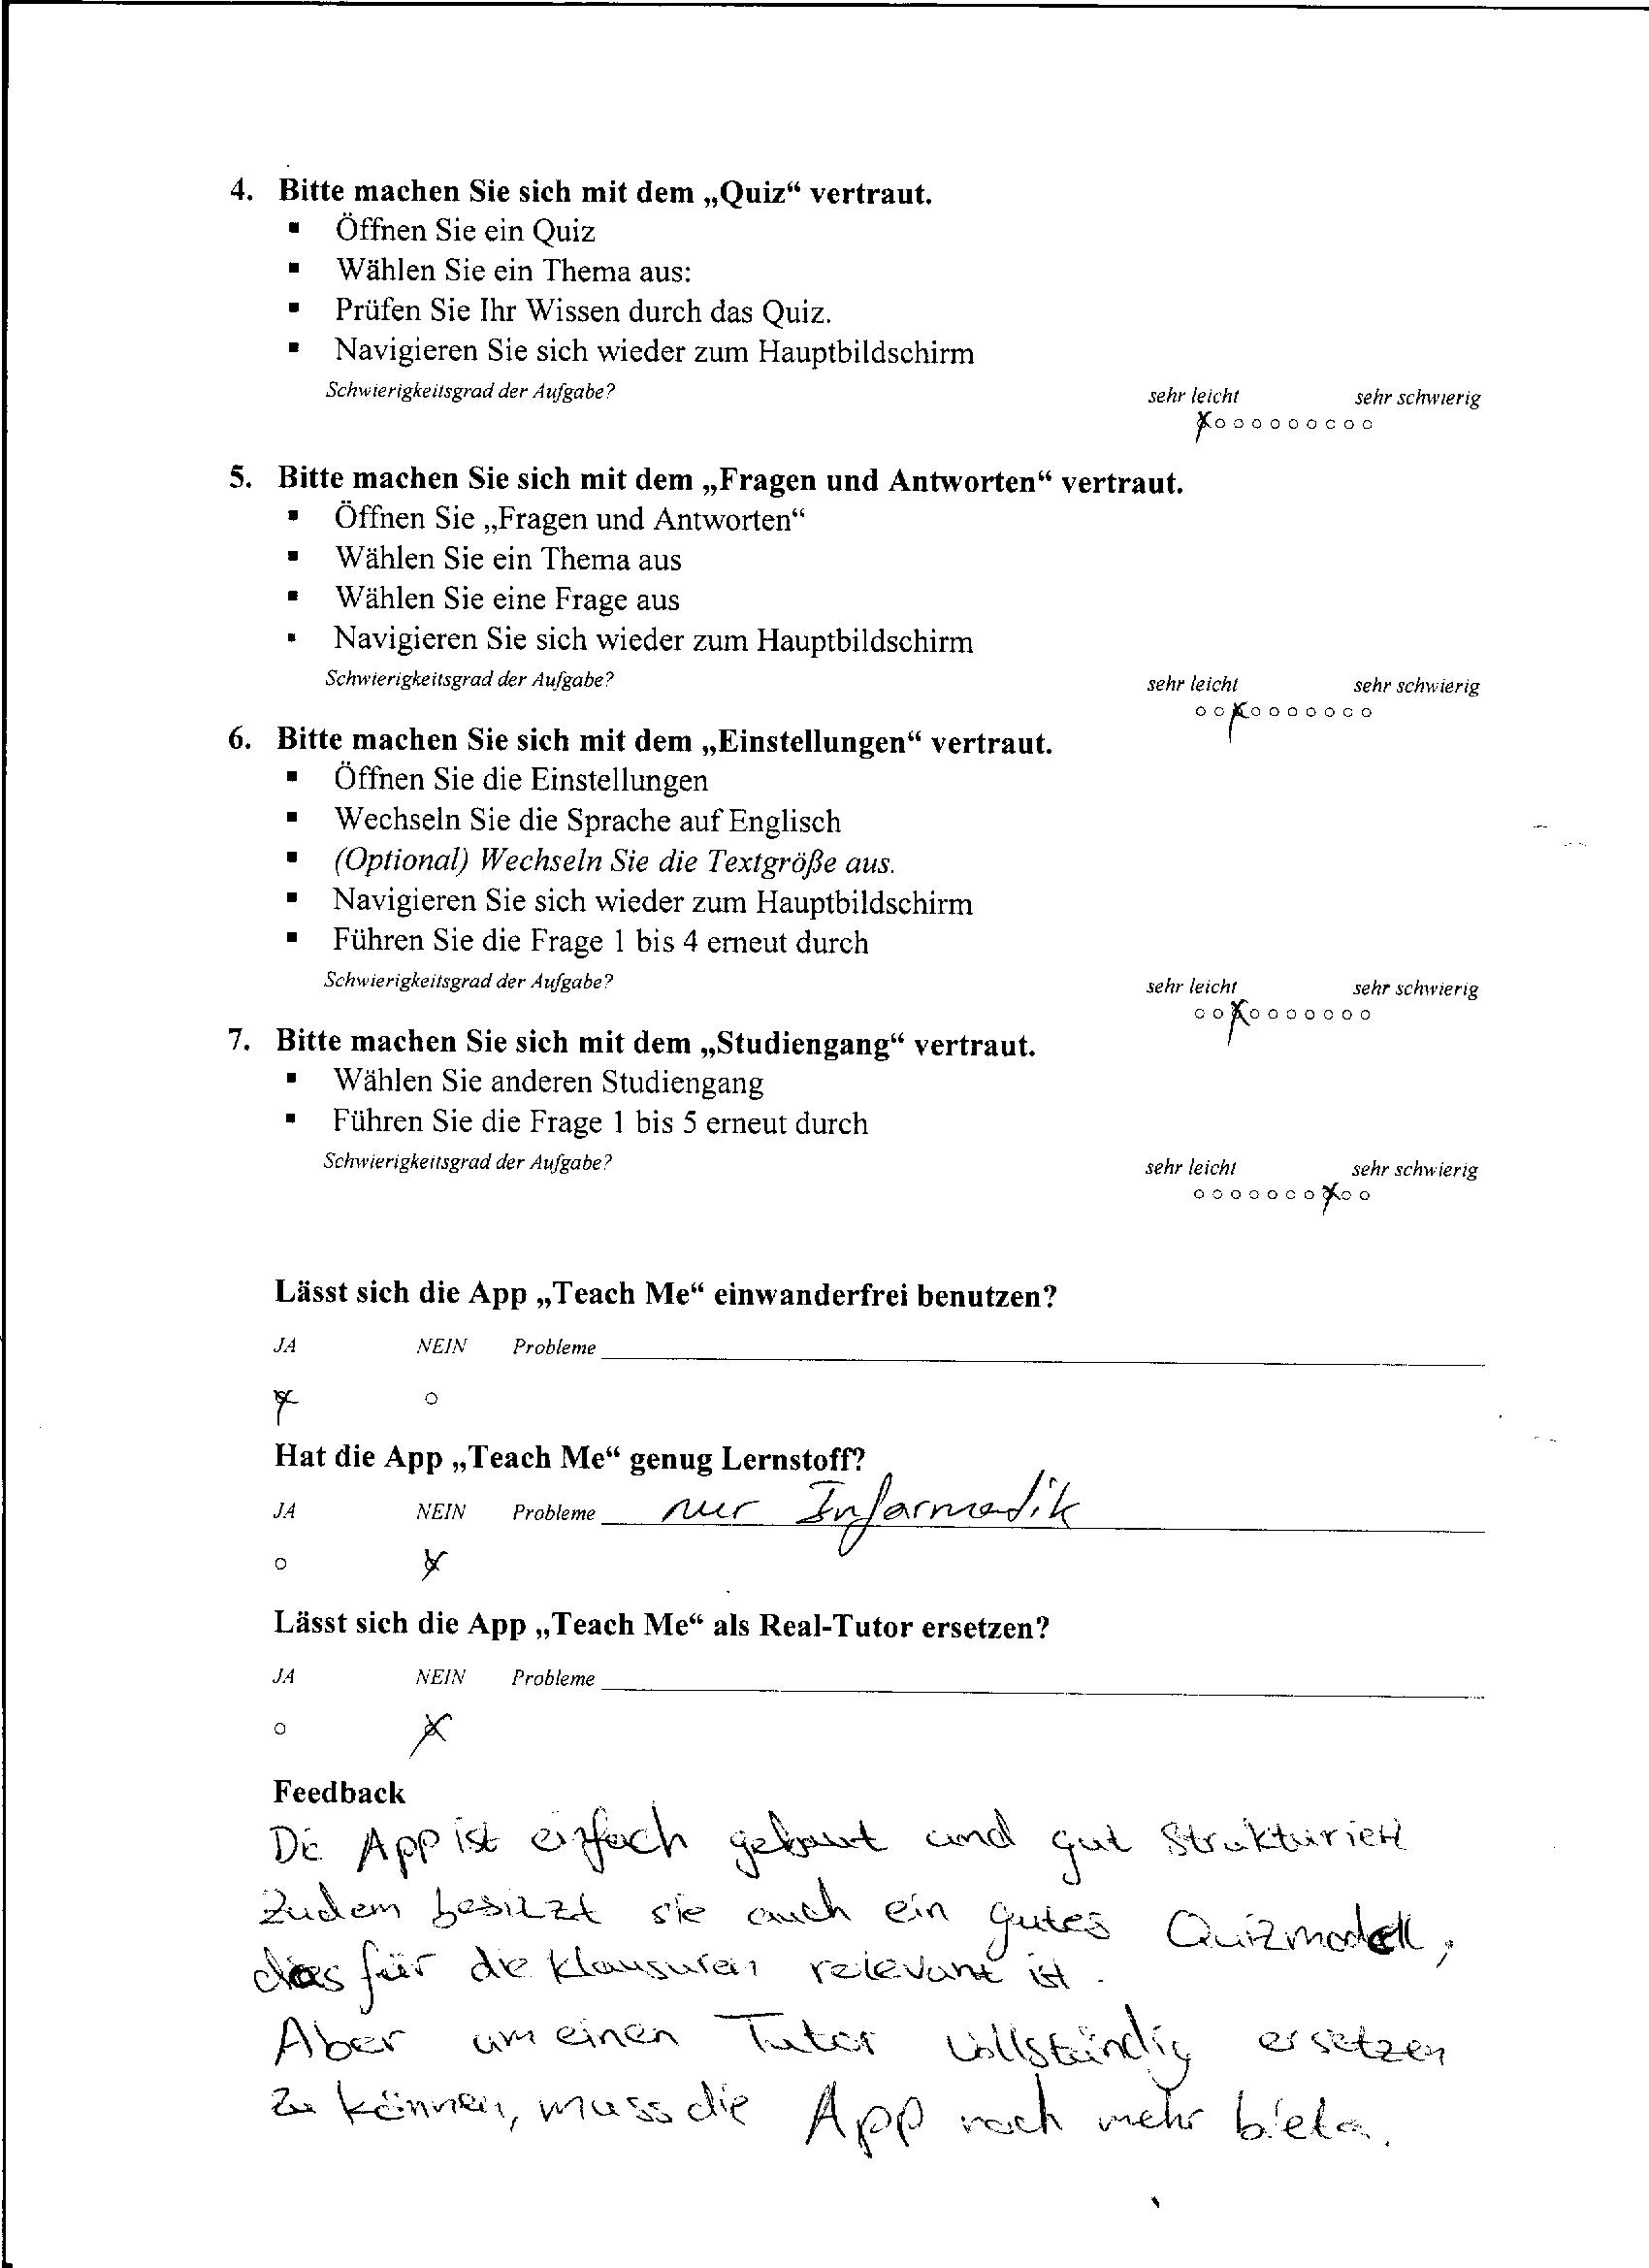 4. Bitte machen Sie sich mit dem „Quiz“ vertraut.
▪ Öffnen Sie ein Quiz
▪ Wählen Sie ein Thema aus:
▪ Prüfen Sie Ihr Wissen durch das Quiz.
▪ Navigieren Sie sich wieder zum Hauptbildschirm
Schwierigkeitsgrad der Aufgabe? sehr leicht sehr schwierig
5. Bitte machen Sie sich mit dem „Fragen und Antworten“ vertraut.
▪ Öffnen Sie „Fragen und Antworten“
▪ Wählen Sie ein Thema aus
▪ Wählen Sie eine Frage aus
▪ Navigieren Sie sich wieder zum Hauptbildschirm
Schwierigkeitsgrad der Aufgabe? sehr leicht sehr schwierig
6. Bitte machen Sie sich mit dem „Einstellungen“ vertraut.
▪ Öffnen Sie die Einstellungen
▪ Wechseln Sie die Sprache auf Englisch
▪ (Optional) Wechseln Sie die Textgröße aus.
▪ Navigieren Sie sich wieder zum Hauptbildschirm
▪ Führen Sie die Frage 1 bis 4 erneut durch
Schwierigkeitsgrad der Aufgabe? sehr leicht sehr schwierig
7. Bitte machen Sie sich mit dem „Studiengang“ vertraut.
▪ Wählen Sie anderen Studiengang
▪ Führen Sie die Frage 1 bis 5 erneut durch
Schwierigkeitsgrad der Aufgabe? sehr leicht sehr schwierig
Lässt sich die App „Teach Me“ einwanderfrei benutzen?
JA NEIN Probleme
Hat die App „Teach Me“ genug Lernstoff?
JA NEIN Probleme nur Informatik
Lässt sich die App „Teach Me“ als Real-Tutor ersetzen?
JA NEIN Probleme
Feedback
Die App ist einfach gebaut und gut strukturiert
Zudem besitzt sie auch ein gutes Quizmodell,
das für die Klausuren relevant ist.
Aber um einen Tutor vollständig ersetzen
zu können, muss die App noch mehr bieten.